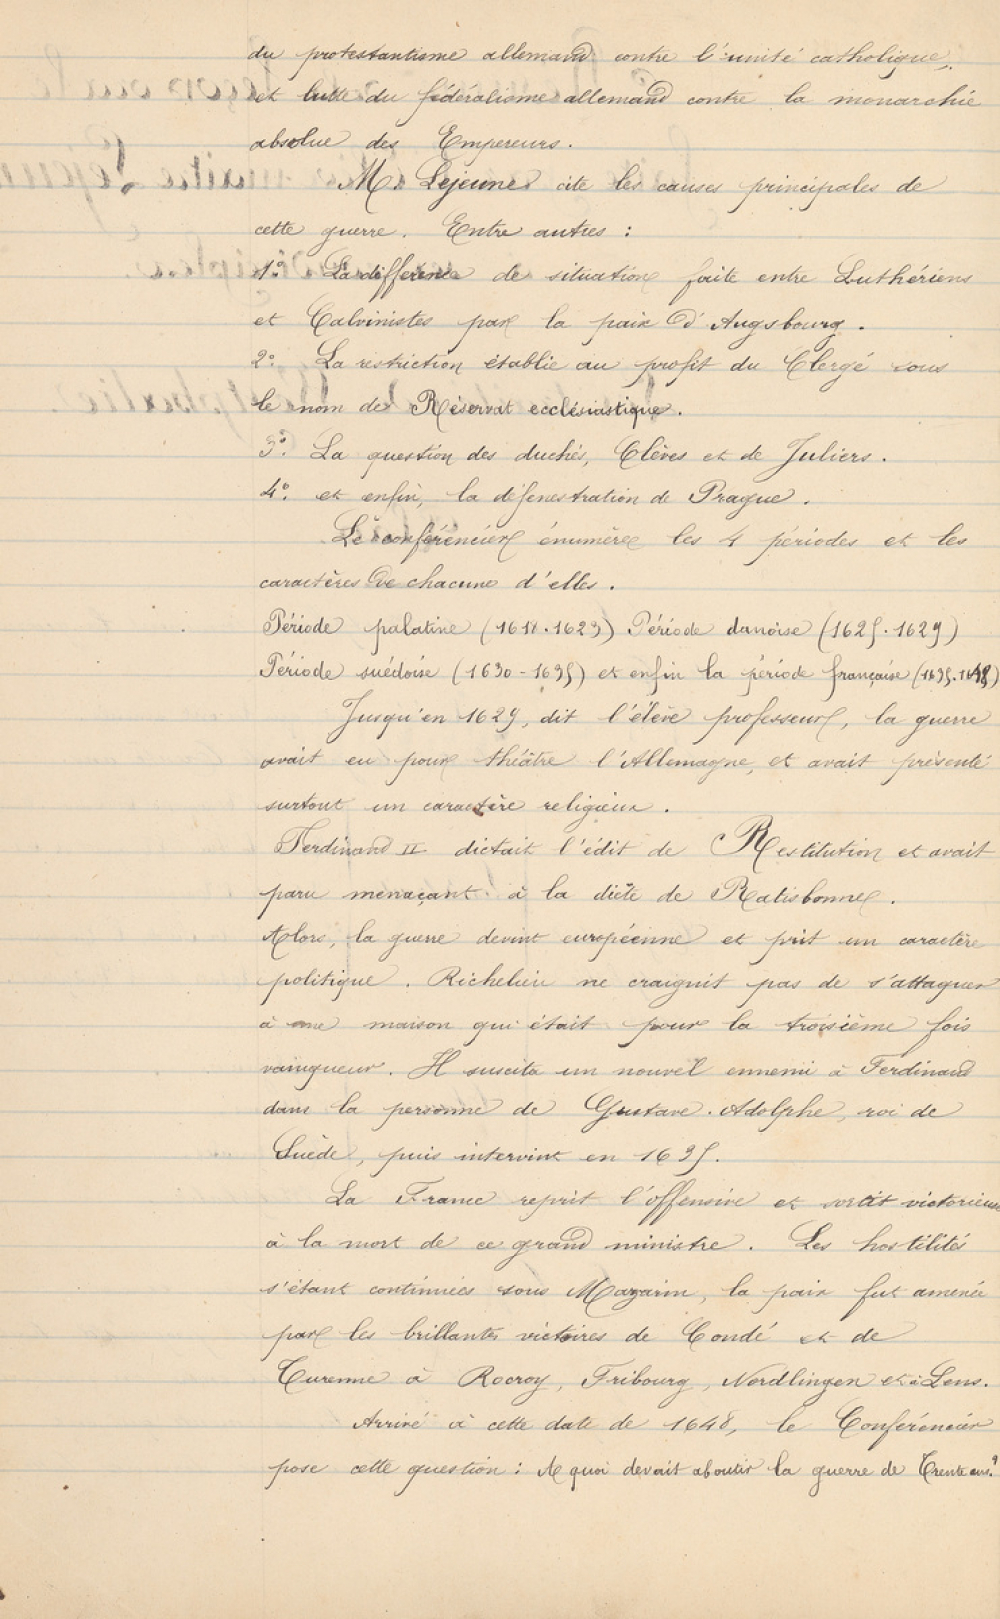 du protestantisme allemand contre l'unité catholique,
et lutte du fédéralisme allemand contre la monarchie
absolue des Empereurs.
M. Lejeune cite les causes principales de
cette guerre. Entre autres :
1º. La différence de situation faite entre Luthériens
et Calvinistes par la paix d'Augsbourg.
2º. La restriction établie au profit du Clergé sous
le nom de Réservat ecclésiastique.
3º. La question des duchés, Clèves et de Juliers.
4º. et enfin, la défenestration de Prague.
Le conférencier énumère les 4 périodes et les
caractères de chacune d'elles.
Période palatine (1618-1623) Période danoise (1625-1629)
Période suédoise (1630-1635) et enfin la période française (1635-1648)
Jusqu'en 1629, dit l'élève professeur, la guerre
avait eu pour théâtre l'Allemagne, et avait présenté
surtout un caractère religieux.
Ferdinand II dictait l'édit de Restitution et avait
paru menaçant à la diète de Ratisbonne.
Alors, la guerre devint européenne et prit un caractère
politique. Richelieu ne craignit pas de s'attaquer
à une maison qui était pour la troisième fois
vainqueur. Il suscita un nouvel ennemi à Ferdinand
dans la personne de Gustave-Adolphe, roi de
Suède, puis intervint en 1635.
La France reprit l'offensive et sortit victorieuse
à la mort de ce grand ministre. Les hostilités
s'étant continuées sous Mazarin, la paix fut amenée
par les brillantes victoires de Condé et de
Turenne à Rocroy, Fribourg, Nordlingen et à Lens.
Arrivé à cette date de 1648, le Conférencier
pose cette question : A quoi devait aboutir la guerre de Trente ans?